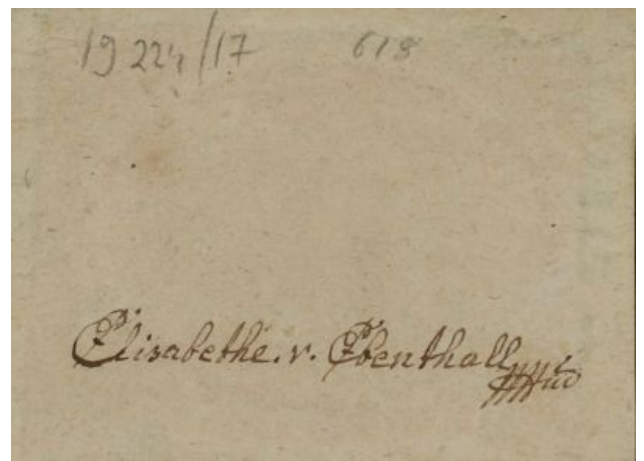 1922,/17 618
Elisabethe. v. Ebenthall